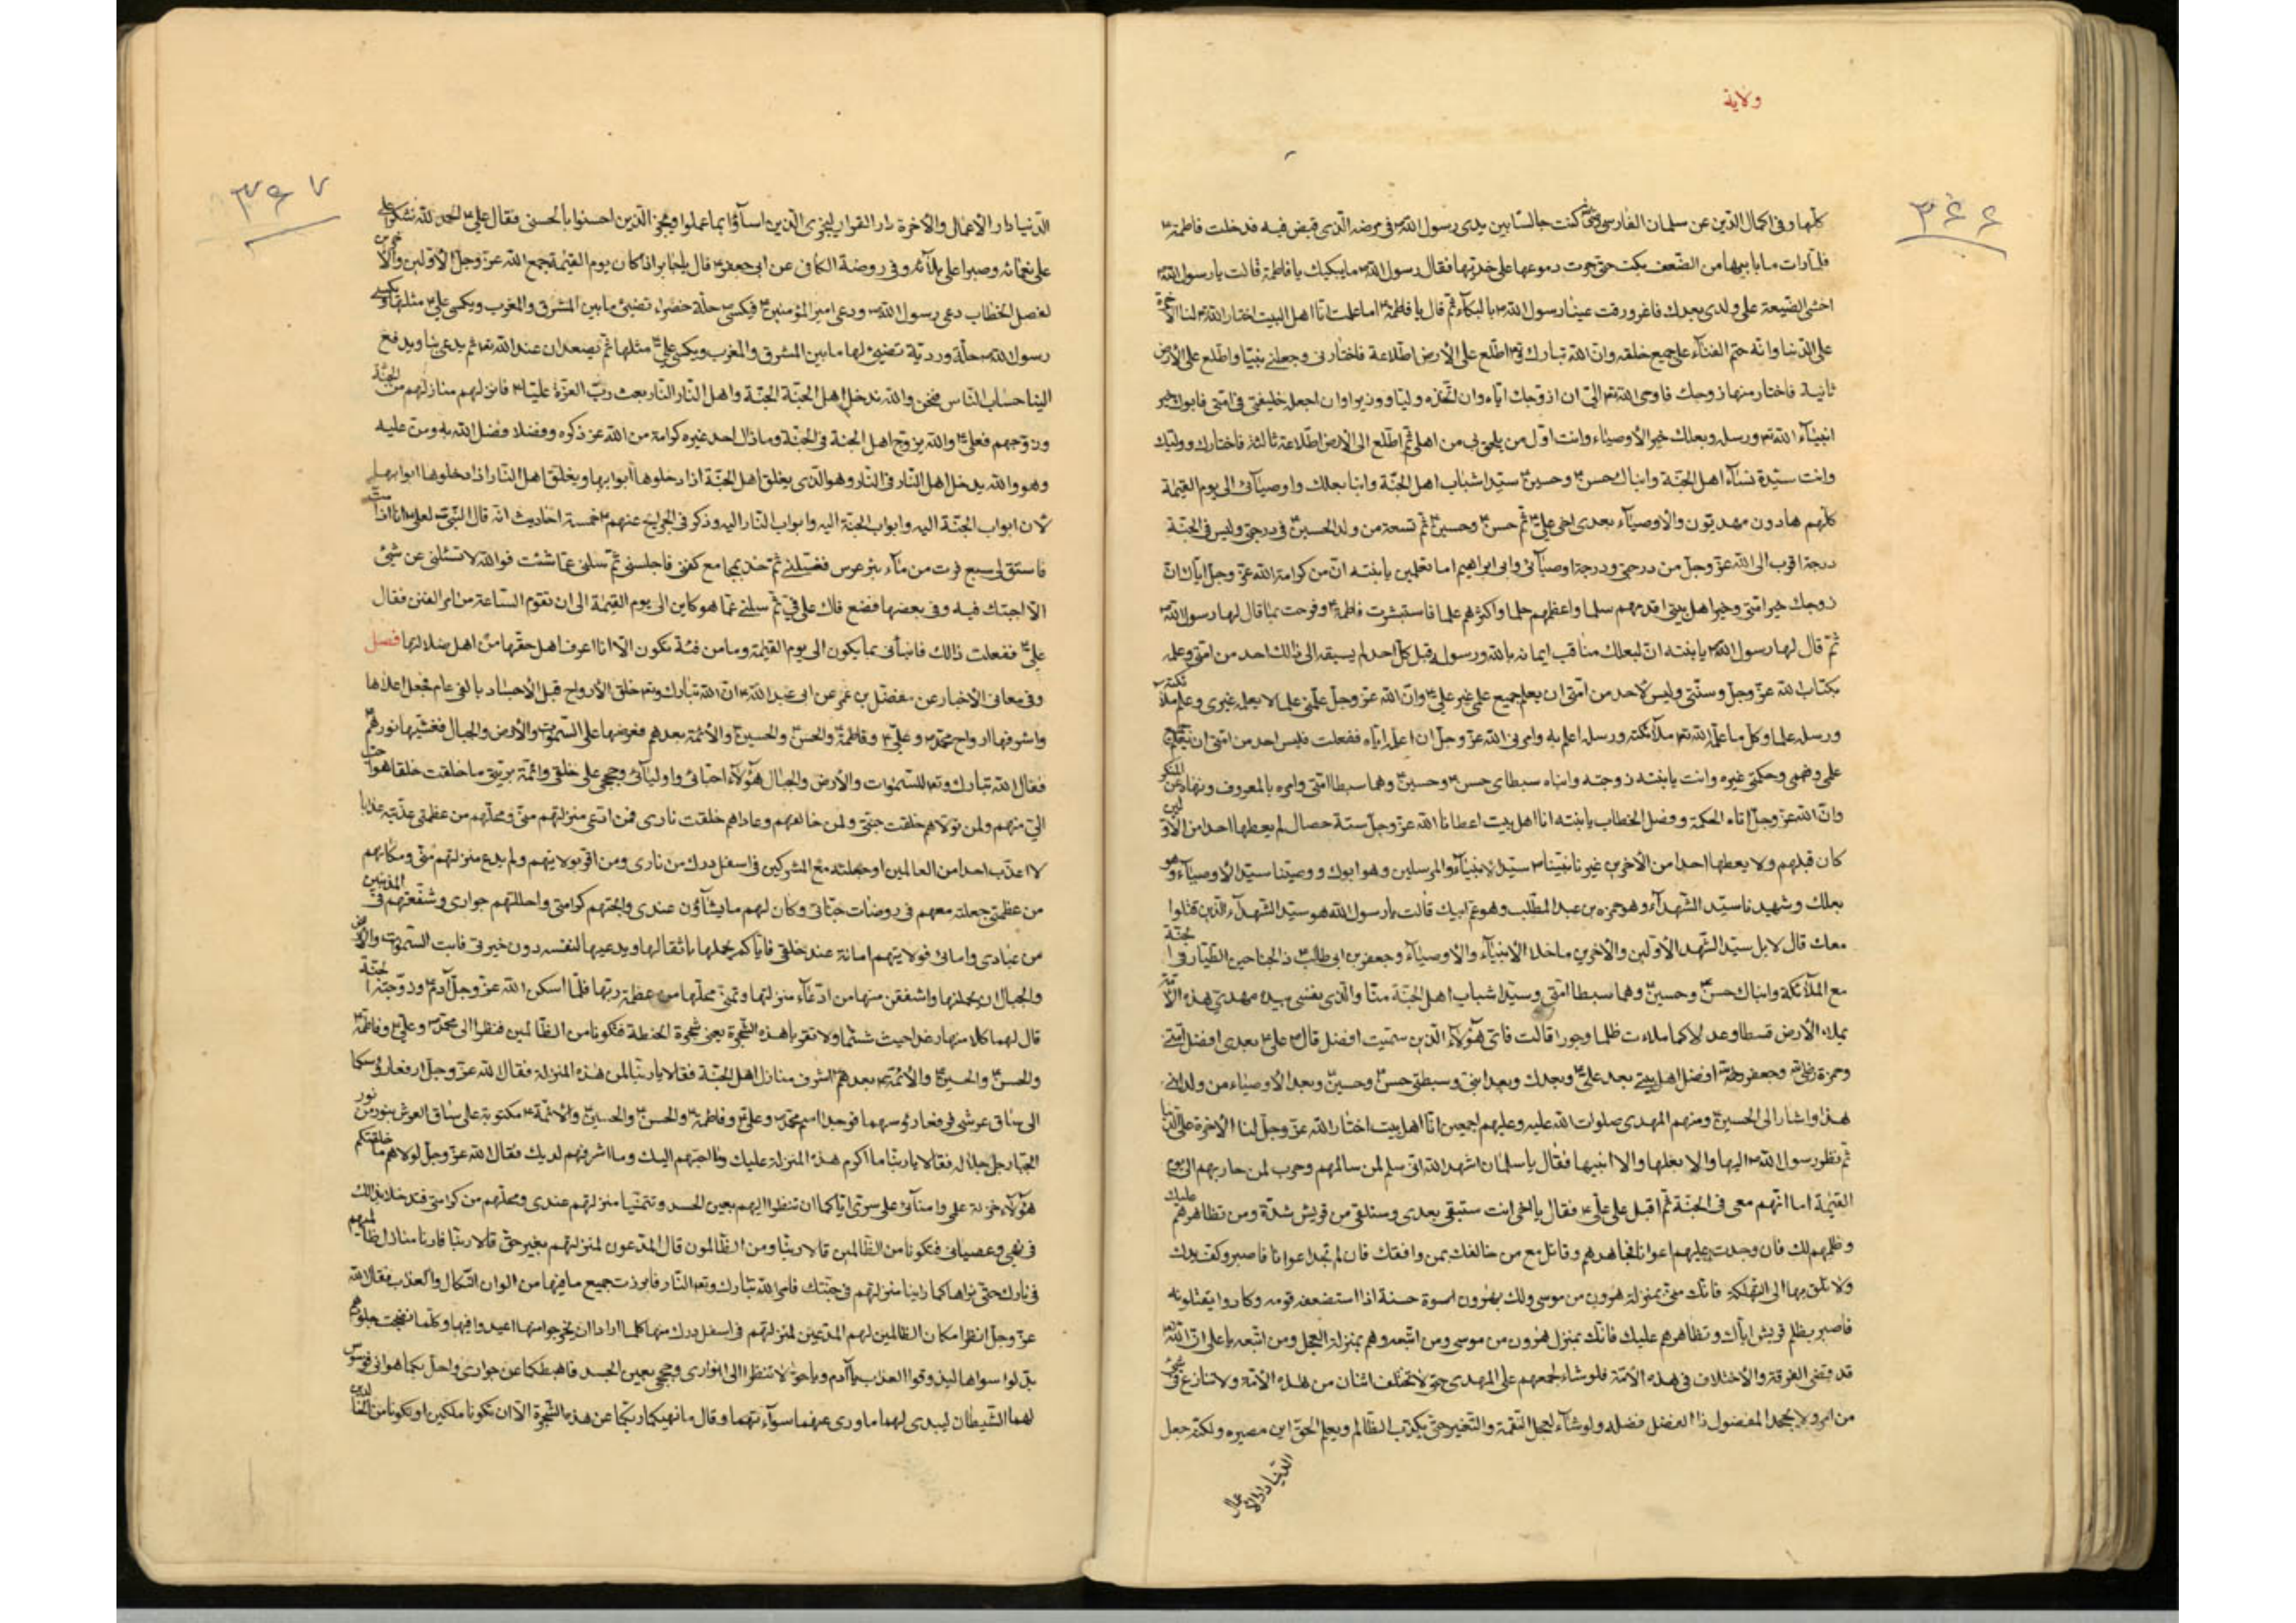 ولاية
٣٤٤
كلّها وفى اكمال الدّين عن سلمان الفارسى كنت جالسًا بين يدى رسول الله فى مرضه الّذى قبض فيه فدخلت فاطمة
فلمّا رات ما بابيها من الضّعف بكت حتّى جرت دموعها على خدّيها فقال رسول الله ما يبكيك يا فاطمة قالت يا رسول الله
اخشى الضّيعة على ولدى بعدك فاغرورقت عينا رسول الله بالبكاء ثمّ قال يا فاطمة اما علمت انّا اهل البيت اختار الله لنا الآخرة
على الدّنيا وانّه حتم الفناء على جميع خلقه وانّ الله تبارك وتع اطّلع على الأرض اطّلاعة فاختارنى وجعلنى نبيّا واطّلع على الأرض
ثانية فاختار منها زوجك فاوحى الله الىّ ان ازوّجك ايّاه وان اتّخذه وليّا ووزيرا وان اجعله خليفتى فى امّتى فابوك خير
انبياء الله ورسله وبعلك خير الأوصياء وانت اوّل من يلحق بى من اهلى ثمّ اطّلع الى الأرض اطّلاعة ثالثة فاختارك وولديك
وانت سيّدة نساء اهل الجنّة وابناك حسن وحسين سيّدا شباب اهل الجنّة وابنا بعلك واوصيائى الى يوم القيمة
كلّهم هادون مهديّون والأوصياء بعدى اخى علىّ ثمّ حسن وحسين ثمّ تسعة من ولد الحسين فى درجتى وليس فى الجنّة
درجة اقرب الى الله عزّ وجلّ من درجتى ودرجة اوصيائى وابى ابراهيم اما تعلمين يا بنته انّ من كرامة الله عزّ وجلّ ايّاك انّ
زوجك خير امّتى وخير اهل بيتى اقدمهم سلما واعظمهم حلما واكثرهم علما فاستبشرت فاطمة وفرحت بما قال لها رسول الله
ثمّ قال لها رسول الله يا بنته انّ لبعلك مناقب ايمانه بالله ورسوله قبل كلّ احد لم يسبقه الى ذالك احد من امّتى وعلمه
بكتاب الله عزّ وجلّ وسنّتى وليس لاحد من امّتى ان يعلم جميع علمى غير علىّ وانّ الله عزّ وجلّ علّمنى علما لا يعلمه غيرى وعلم ملائكته
ورسله علما وكلّ ما علّمه الله ملائكته ورسله اعلم به وامرنى الله عزّ وجلّ ان اعلّمه ايّاه ففعلت فليس احد من امّتى ان يعلم جميع
علمى وفهمى وحكمتى غيره وانت يا بنته زوجته وابناه سبطاى حسن وحسين وهما سبطا امّتى وامره بالمعروف ونهاه عن المنكر
وانّ الله عزّ وجلّ اتاه الحكمة وفصل الخطاب يا بنته انا اهل بيت اعطانا الله عزّ وجلّ ستّة خصال لم يعطها احدا من الأوّلين
كان قبلهم ولا يعطها احدا من الآخرين غيرنا نبيّنا سيّد الأنبياء والمرسلين وهو ابوك ووصيّنا سيّد الأوصياء وهو
بعلك وشهيدنا سيّد الشّهداء وهو حمزة بن عبد المطّلب وهو عم ابيك قالت يا رسول الله هو سيّد الشّهداء الّذين قتلوا
معك قال لا بل سيّد الشّهداء الأوّلين والآخرين ما خلا الأنبياء والأوصياء وجعفر بن ابى طالب ذا الجناحين الطّيار فى الجنّة
مع الملائكة وابناك حسن وحسين وهما سبطا امّتى وسيّدا شباب اهل الجنّة منّا والّذى نفسى بيده مهدىّ هذه الأمّة
يملاء الأرض قسطا وعدلا كما ملئت ظلما وجورا قالت فاىّ هؤلاء الّذين سمّيت افضل قال علىّ بعدى افضل امّتى
وحمزة وجعفر افضل اهل بيتى بعد علىّ وبعدك وبعد ابنىّ وسبطىّ حسن وحسين وبعد الأوصياء من ولد ابنى
هذا واشار الى الحسين ومنهم المهدى صلوات الله عليه وعليهم اجمعين انّا اهل بيت اختار الله عزّ وجلّ لنا الآخرة على الدّنيا
ثم نظر رسول الله اليها والى بعلها والى ابنيها فقال يا سلمان اشهد الله انّى سلم لمن سالمهم وحرب لمن حاربهم الى يوم
القيمة اما انّهم معى فى الجنّة ثمّ اقبل على علىّ فقال يا اخى انت ستبقى بعدى وستلقى من قريش شدّة ومن تظاهرهم عليك
وظلمهم لك فان وجدت عليهم اعوانا فجاهدهم وقاتل مع من خالفك بمن وافقك فان لم تجد اعوانا فاصبر وكف يدك
ولا تلق بها الى التهلكة فانّك منّى بمنزلة هرون من موسى ولك بهرون اسوة حسنة اذا استضعفه قومه وكادوا يقتلونه
فاصبر بظلم قريش ايّاك وتظاهرهم عليك فانّك بمنزلة هرون من موسى ومن اتّبعه وهم بمنزلة العجل ومن اتّبعه يا على انّ الله
قد قضى الفرقة والأختلاف فى هذه الأمّة فلو شاء لجمعهم على الهدى حتّى لا تختلف اثنان من هذه الأمّة ولا تنازع فى شئ
من امره ولا يجحد المفضول ذا الفضل فضله ولو شاء لعجل النّقمة والتغيير حتّى يكذّب الظّالم ويعلم الحقّ اين مصيره ولكنّه جعل
الدّنيا دار الأعمال
٣٤٧
الدّنيا دار الأعمال والآخرة دار القرار ليجزى الّذين اساؤا بما عملوا ويجزى الّذين احسنوا بالحسنى فقال علىّ الحمد لله شكرا على
على نعمائه وصبرا على بلائه وفى روضة الكافى عن ابى جعفر قال يا جابر اذا كان يوم القيمة جمع الله عزّ وجلّ الأوّلين والآخرين
لفصل الخطاب دعى رسول الله ودعى امير المؤمنين فيكسى حلّة خضراء تضيئ ما بين المشرق والمغرب ويكسى علىّ مثلها ويكسى
رسول الله حلّة ورديّة تضيئ لها ما بين المشرق والمغرب ويكسى علىّ مثلها ثمّ يصعدان عند الله ثم يدعى بنا ويدفع
الينا حساب النّاس فنحن والله ندخل اهل الجنّة الجنّة واهل النّار النّار بعث ربّ العزّة عليّا فانزلهم منازلهم من الجنّة
وزوّجهم فعلىّ والله يزوّج اهل الجنة فى الجنّة وما ذاك لاحد غيره كرامة من الله عز ذكره وفضلا فضله الله به ومنّ عليه
وهو والله يدخل اهل النّار فى النّار وهو الّذى يغلق اهل الجنّة اذا دخلوها ابوابها ويغلق اهل النّار اذا دخلوها ابوابها
لأن ابواب الجنّة اليه وابواب النّار اليه وذكر فى الخرايج عنهم خمسة احاديث انّه قال النّبى لعلىّ اذا انا متّ
فاستق لى سبع قرب من ماء بئر غرس فغسّلنى ثمّ خذ بمجامع كفنى فاجلسنى ثمّ سلنى عمّا شئت فوالله لا تسئلنى عن شئ
الّا اجبتك فيه وفى بعضها فضع فاك على فىّ ثمّ سلنى عمّا هو كاين الى يوم القيمة الى ان تقوم السّاعة من امر الفتن فقال
علىّ ففعلت ذالك فانبأنى بما يكون الى يوم القيمة وما من فئة تكون الّا انا اعرف اهل حقّها من اهل ضلالتها فصل
وفى معانى الأخبار عن مفضّل بن عمر عن ابى عبد الله انّ الله تبارك وتع خلق الأرواح قبل الأجساد بالفى عام فجعل اعلاها
واشرفها ارواح محمّد وعلىّ وفاطمة والحسن والحسين والأئمّة بعدهم فعرضها على السّموات والأرض والجبال فغشيها نورهم
فقال الله تبارك وتع للسّموات والأرض والجبال هؤلاء احبّائى واوليائى وحججى على خلقى وائمّة بريّتى ما خلقت خلقا هو احبّ
الىّ منهم ولمن تولّاهم خلقت جنّتى ولمن خالفهم وعاداهم خلقت نارى فمن ادّعى منزلتهم منّى ومحلّهم من عظمتى عذّبته عذابا
لا اعذّب احدا من العالمين وجعلته مع المشركين فى اسفل درك من نارى ومن اقرّ بولايتهم ولم يدع منزلتهم منّى ومكانهم
من عظمتى جعلته معهم فى روضات جنّاتى وكان لهم ما يشآؤن عندى وابحتهم كرامتى واحللتهم جوارى وشفّعتهم فى المذنبين
من عبادى وامائى فولايتهم امانة عند خلقى فايّكم يحملها باثقالها ويدعيها لنفسه دون خيرتى فابت السّموات والأرض
والجبال ان يحملنها واشفقن منها من ادّعاء منزلتها وتمنّى محلّها من عظمة ربّها فلمّا اسكن الله عزّ وجلّ آدم وزوّجته الجنّة
قال لهما كلا منها رغدا حيث شئتما ولا تقربا هذه الشّجرة يعنى شجرة الحنطة فتكونا من الظّالمين فنظرا الى محمّد وعلىّ وفاطمة
والحسن والحسين والأئمّة بعدهم اشرف منازل اهل الجنّة فقالا يا ربّنا لمن هذه المنزلة فقال الله عزّ وجلّ ارفعا رؤسكما
الى ساق عرشى فرفعا رؤسهما فوجدا اسم محمّد وعلىّ وفاطمة والحسن والحسين والأئمّة مكتوبة على ساق العرش بنور من نور
الجبّار جلّ جلاله فقالا يا ربّنا ما اكرم هذه المنزلة عليك وما احبّهم اليك وما اشرفهم لديك فقال الله عزّ وجلّ لولاهم ما خلقتكم
هؤلاء خزنة علمى وامنائى على سرّى ايّاكما ان تنظرا اليهم بعين الحسد وتتمنّيا منزلتهم عندى ومحلّهم من كرامتى فتدخلا بذالك
فى نهيى وعصيانى فتكونا من الظّالمين قالا ربّنا ومن الظّالمون قال المدّعون لمنزلتهم بغير حقّ قالا ربّنا فارنا منازل ظالميهم
فى نارك حتّى نراها كما راينا منزلتهم فى جنّتك فامر الله تبارك وتع النّار فابرزت جميع ما فيها من الوان النّكال والعذاب فقال الله
عزّ وجلّ انظرا مكان الظّالمين لهم المدّعين لمنزلتهم فى اسفل درك منها كلّما ارادا ان يخرجوا منها اعيدوا فيها وكلّما نضجت جلودهم
بدّلوا سواها ليذوقوا العذاب يا آدم ويا حوّا لا تنظرا الى انوارى وحججى بعين الحسد فاهبطكما عن جوارى واحلّ بكما هوانى فوسوس
لهما الشّيطان ليبدى لهما ما ورى عنهما من سوآتهما وقال ما نهيكما ربّكما عن هذه الشّجرة الّا ان تكونا ملكين او تكونا من الخالدين